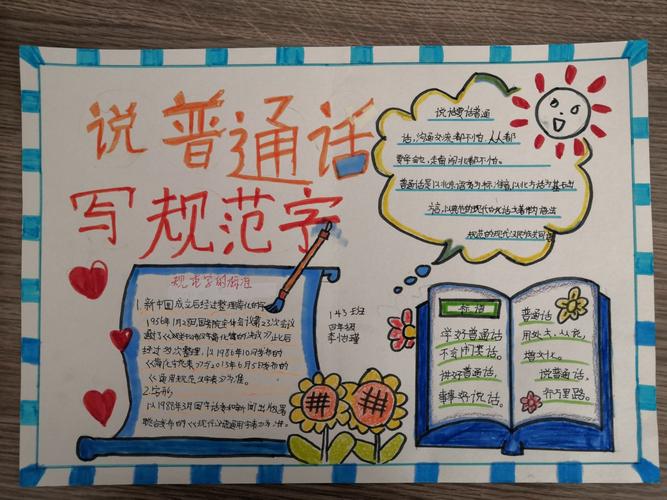 说普通话
写规范字
说话要说普通
话,沟通交流都不怕,人人都
要学会它,走南闯北都不怕。
普通话是以北京语音为标准音,以北方话为基础
方言,以典范的现代白话文著作为语法
规范的现代汉民族共同语
规范字的标准
1.新中国成立后经过整理简化的字
1956年1月28日国务院全体会议第23次会议
通过《
决议》此后
经过多次整理,以1986年10月发布的
《简化字总表》与2013年6月5日发布的
《通用规范汉字表》为准。
2.字形
以1988年3月国家语委和新闻出版署
联合发布的《现代汉语通用字表》为准。
143班
四年级
李怡瑾
标语
学好普通话
不言闭塞话。
讲好普通话
事事好说话。
普通话
用处大,从我,
增文化。
说普通话,
行万里路。